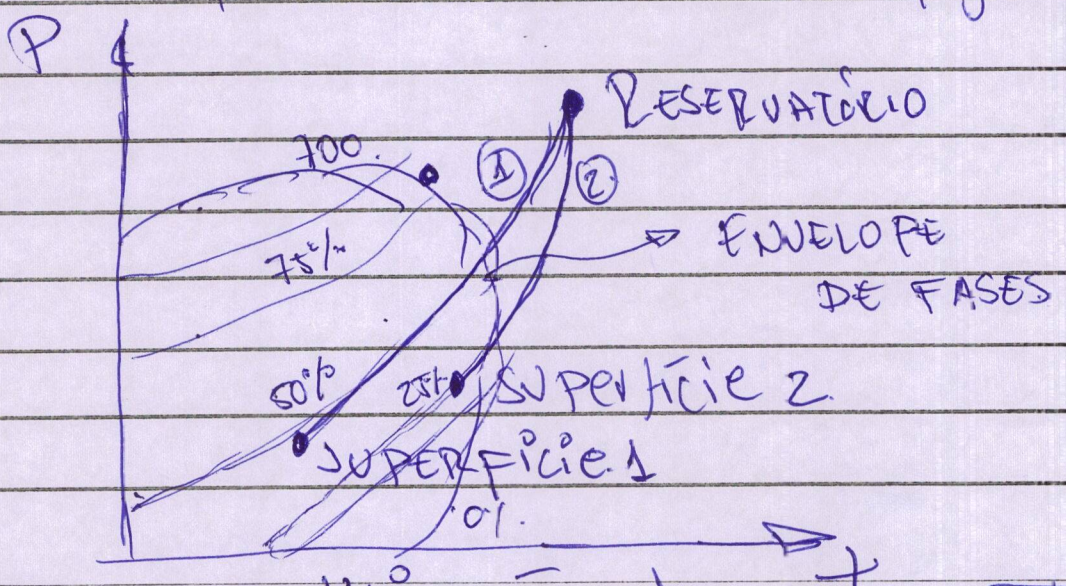 P
RESERVATÓRIO
100
1
2
75%
ENVELOPE
DE FASES
50%
25%
SUPERFÍCIE 2
SUPERFÍCIE 1
0%
T